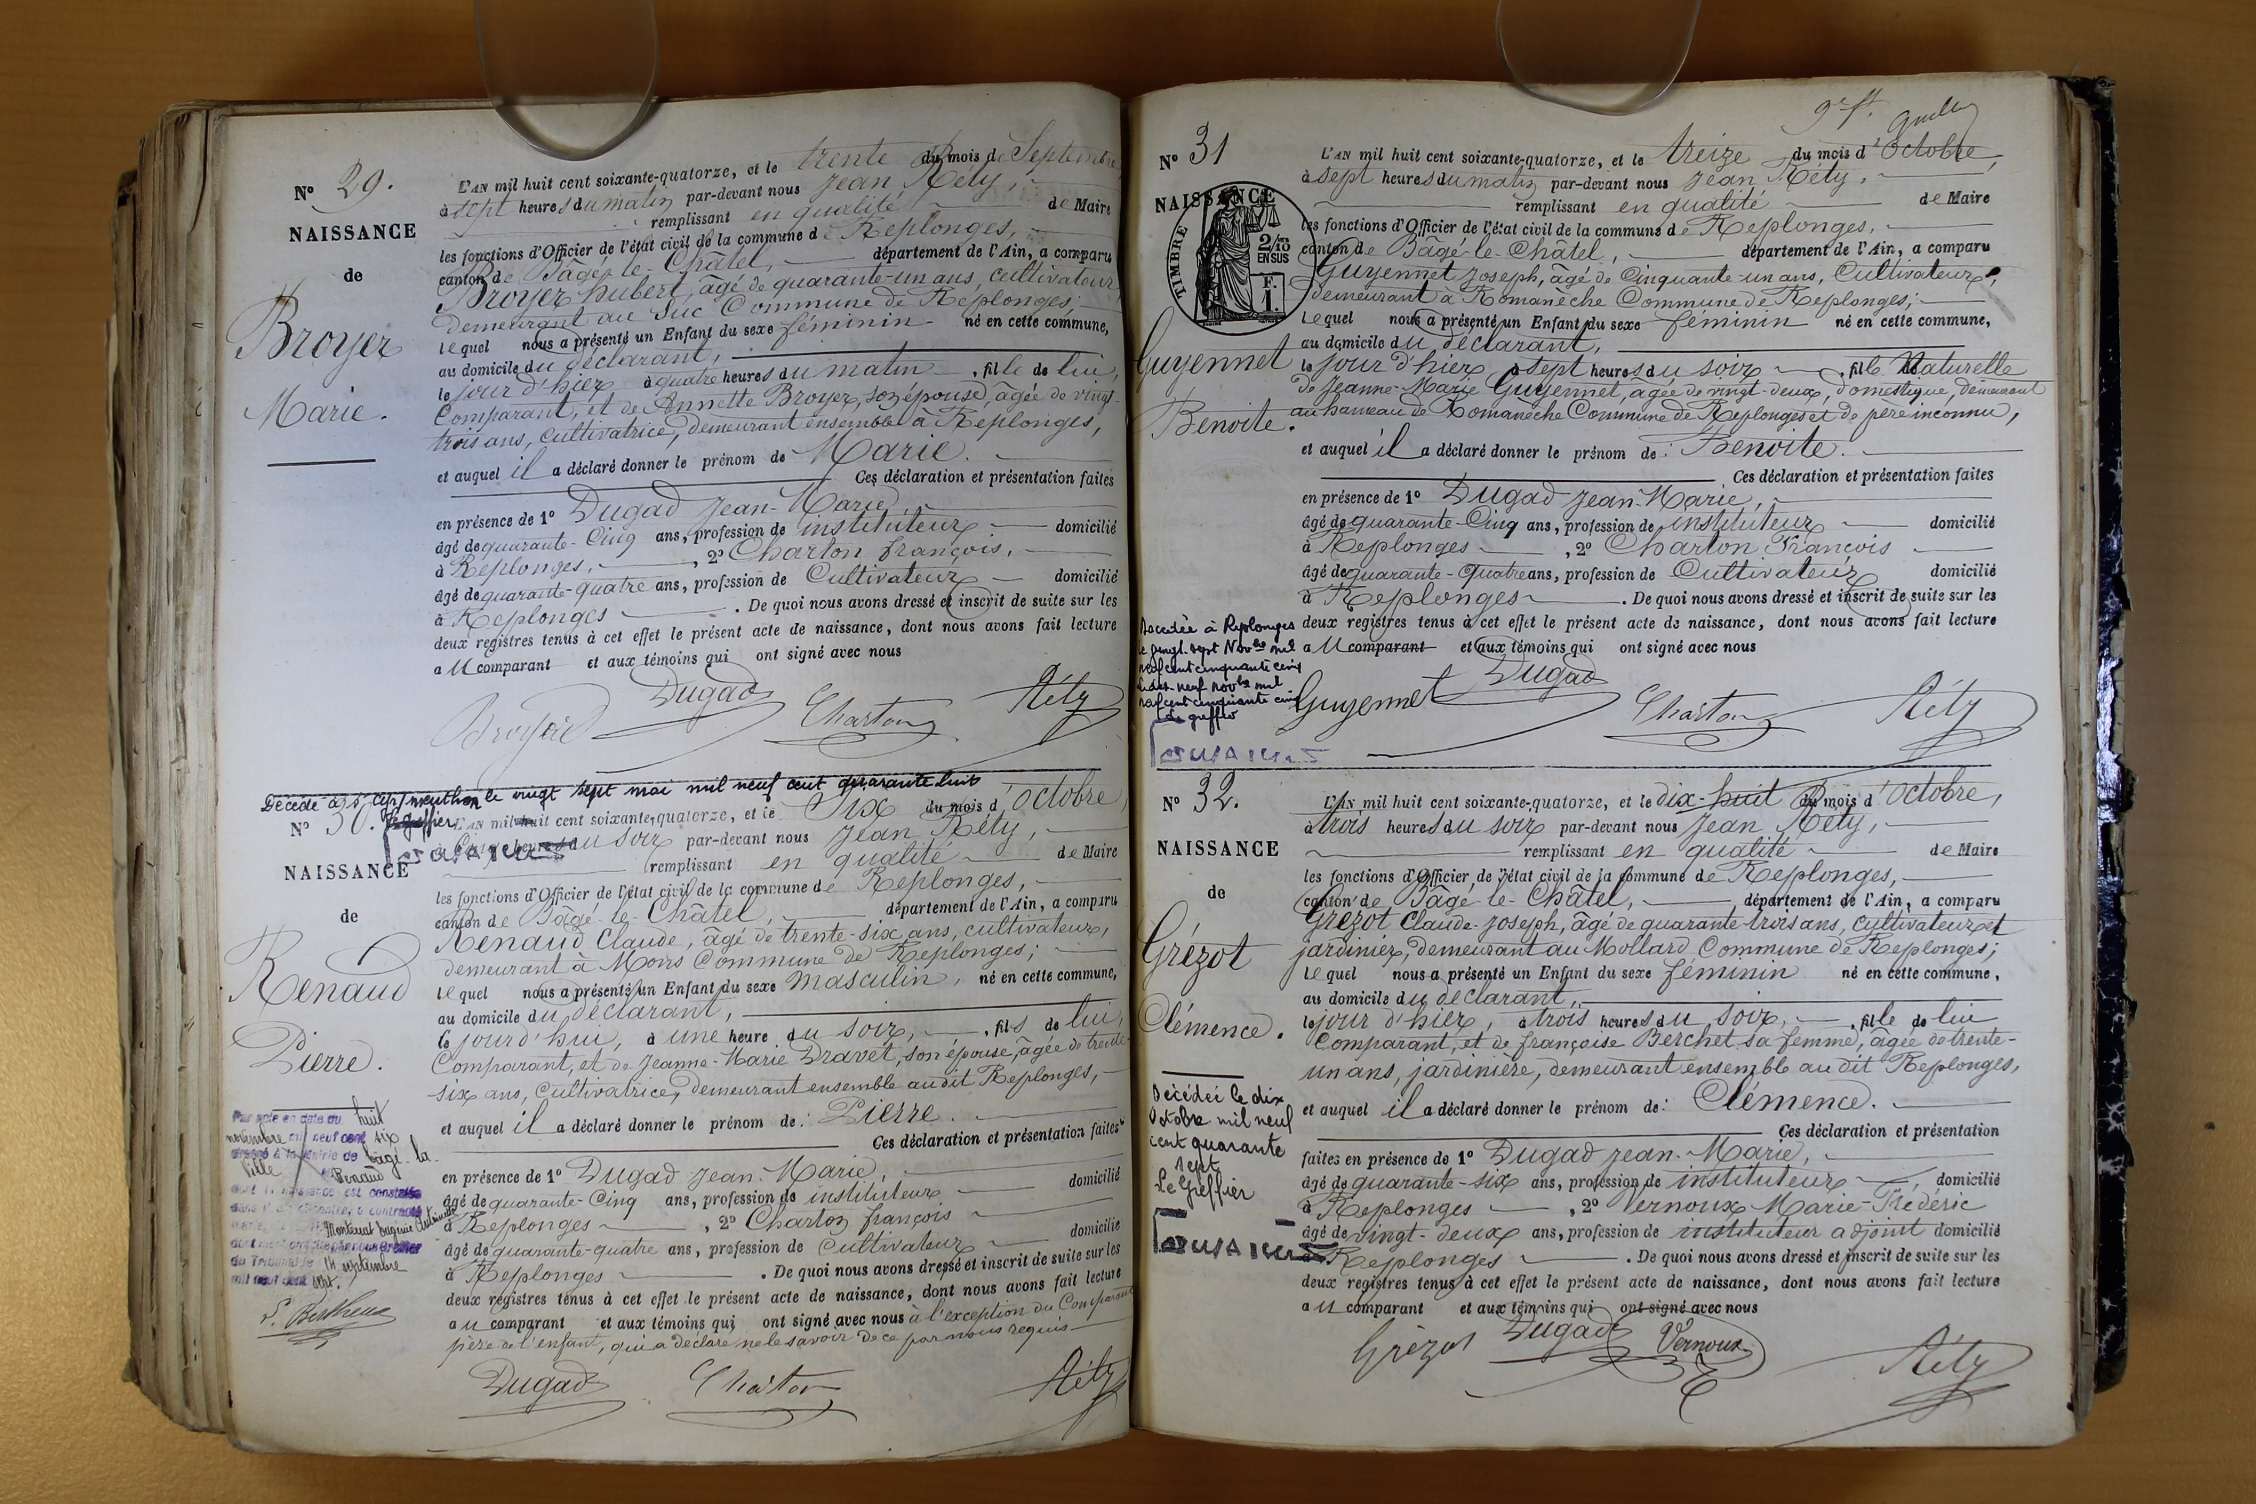 N° 29.
NAISSANCE
de
Broyer
Marie.
L'AN mil huit cent soixante-quatorze, et le trente du mois de Septembre
à sept heures du matin par-devant nous Jean Rély,
remplissant en qualité de Maire
les fonctions d'Officier de l'état civil de la commune de Replonges,
canton de Bâgé-le-Châtel, département de l'Ain, a comparu
Broyer hubert, âgé de quarante-un ans, cultivateur,
demeurant au Suc Commune de Replonges;
lequel nous a présenté un Enfant du sexe féminin né en cette commune,
au domicile du déclarant,
le jour d'hier à quatre heures du matin, fille de lui,
Comparant, et de Annette Broyer, son épouse, âgée de vingt-
trois ans, cultivatrice, demeurant ensemble à Replonges,
et auquel il a déclaré donner le prénom de Marie.
Ces déclaration et présentation faites
en présence de 1° Dugad Jean-Marie,
âgé de quarante-Cinq ans, profession de instituteur domicilié
à Replonges, 2° Charton françois,
âgé de quarante-quatre ans, profession de Cultivateur domicilié
à Replonges. De quoi nous avons dressé et inscrit de suite sur les
deux registres tenus à cet effet le présent acte de naissance, dont nous avons fait lecture
au comparant et aux témoins qui ont signé avec nous
Broyer Dugad Charton Rély
Décédé à le vingt sept mai mil neuf cent quarante huit
Le greffier
N° 30.
NAISSANCE
de
Renaud
Pierre.
L'AN mil huit cent soixante-quatorze, et le Six du mois d'Octobre,
à Cinq heures du soir par-devant nous Jean Rély,
remplissant en qualité de Maire
les fonctions d'Officier de l'état civil de la commune de Replonges,
canton de Bâgé-le-Châtel, département de l'Ain, a comparu
Renaud Claude, âgé de trente-six ans, cultivateur,
demeurant à Mons Commune de Replonges;
lequel nous a présenté un Enfant du sexe masculin, né en cette commune,
au domicile du déclarant,
le jourd'hui, à une heure du soir, fils de lui,
Comparant, et de Jeanne-Marie Dravet, son épouse, âgée de trente-
six ans, cultivatrice, demeurant ensemble audit Replonges,
et auquel il a déclaré donner le prénom de: Pierre.
Ces déclaration et présentation faites
en présence de 1° Dugad Jean-Marie,
âgé de quarante-Cinq ans, profession de instituteur domicilié
à Replonges, 2° Charton françois
âgé de quarante-quatre ans, profession de cultivateur domicilié
à Replonges. De quoi nous avons dressé et inscrit de suite sur les
deux registres tenus à cet effet le présent acte de naissance, dont nous avons fait lecture
au comparant et aux témoins qui ont signé avec nous à l'exception du Comparant
père de l'enfant, qui a déclaré ne le savoir de ce par nous requis
Dugad Charton Rély
Par acte en date du huit
novembre mil neuf cent six
dressé à la mairie de Bâgé-la-
Ville
Renaud
dont la naissance est constatée
dans l'acte ci-contre, a contracté
mariage avec Montenat Eugénie
du Tribunal le 14 septembre
mil neuf cent sept.
P. Bertheus
9e ft.
N° 31
NAISSANCE
TIMBRE
2/10 EN SUS
F. 1.
Guyennet
Benoite.
L'AN mil huit cent soixante-quatorze, et le treize du mois d'Octobre,
à sept heures du matin par-devant nous Jean Rély,
remplissant en qualité de Maire
les fonctions d'Officier de l'état civil de la commune de Replonges,
canton de Bâgé-le-Châtel, département de l'Ain, a comparu
Guyennet Joseph, âgé de Cinquante-un ans, Cultivateur,
demeurant à Romanèche Commune de Replonges;
lequel nous a présenté un Enfant du sexe féminin né en cette commune,
au domicile du déclarant,
le jour d'hier, à sept heures du soir, fille Naturelle
de Jeanne-Marie Guyennet, âgée de vingt-deux, domestique, demeurant
au hameau de Romanèche Commune de Replonges et de père inconnu,
et auquel il a déclaré donner le prénom de: Benoite.
Ces déclaration et présentation faites
en présence de 1° Dugad Jean-Marie,
âgé de quarante-Cinq ans, profession de instituteur domicilié
à Replonges, 2° Charton François
âgé de quarante-quatre ans, profession de Cultivateur domicilié
à Replonges. De quoi nous avons dressé et inscrit de suite sur les
deux registres tenus à cet effet le présent acte de naissance, dont nous avons fait lecture
au comparant et aux témoins qui ont signé avec nous
Guyennet Dugad Charton Rély
Décédée à Replonges
le vingt-sept Novbre mil
neuf cent cinquante cinq
le dix-neuf novbre mil
neuf cent cinquante cinq
Le greffier
N° 32.
NAISSANCE
de
Grézot
Clémence.
L'AN mil huit cent soixante-quatorze, et le dix-huit du mois d'Octobre,
à trois heures du soir par-devant nous Jean Rély,
remplissant en qualité de Maire
les fonctions d'Officier de l'état civil de la commune de Replonges,
canton de Bâgé-le-Châtel, département de l'Ain, a comparu
Grézot Claude-Joseph, âgé de quarante-trois ans, cultivateur et
jardinier, demeurant au Mollard Commune de Replonges;
lequel nous a présenté un Enfant du sexe féminin né en cette commune,
au domicile du déclarant,
le jour d'hier, à trois heures du soir, fille de lui
Comparant, et de françoise Berchet sa femme, âgée de trente-
un ans, jardinière, demeurant ensemble au dit Replonges,
et auquel il a déclaré donner le prénom de: Clémence.
Ces déclaration et présentation
faites en présence de 1° Dugad Jean-Marie,
âgé de quarante-six ans, profession de instituteur, domicilié
à Replonges, 2° Vernoux Marie-Frédéric
âgé de vingt-deux ans, profession de instituteur adjoint domicilié
à Replonges. De quoi nous avons dressé et inscrit de suite sur les
deux registres tenus à cet effet le présent acte de naissance, dont nous avons fait lecture
au comparant et aux témoins qui ont signé avec nous
Grézot Dugad Vernoux Rély
Décédée le dix
Octobre mil neuf
cent quarante
sept
Le Greffier